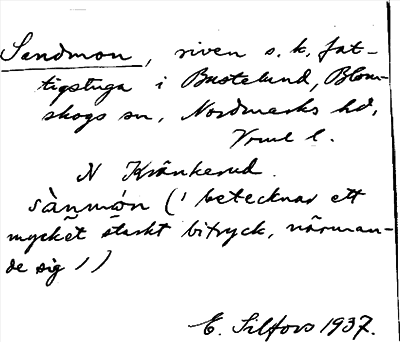 Sandmon, riven s. k. fat-
tigstuga i Bastelund, Blom-
skogs sn, Nordmarks hd,
Vrml l.
N Krånkerud.
sànmón (ˈ betecknar ett
mycket starkt bitryck, närman-
de sig ˈ)
E. Silfors 1937.